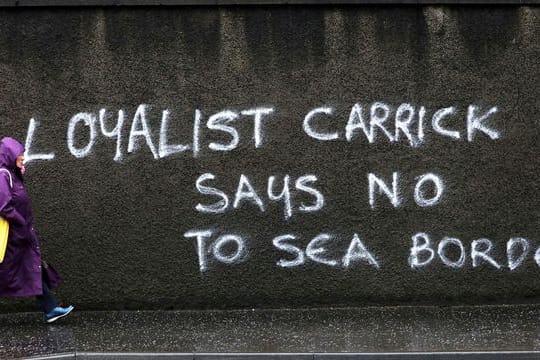 LOYALIST CARRICK
SAYS NO
TO SEA BORDE